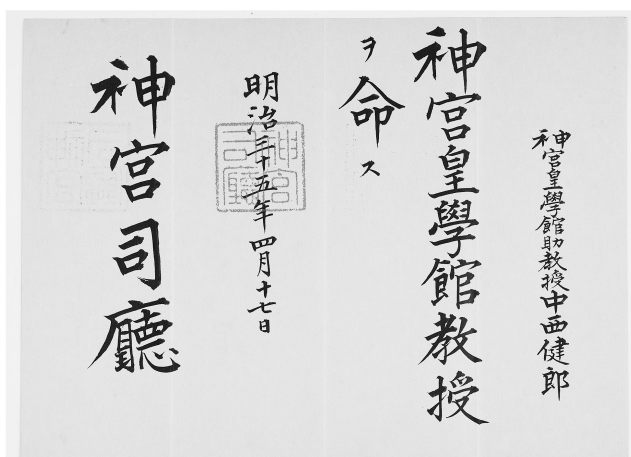 神宮皇學館助教授中西健郎
神宮皇學館教授
ヲ命ス
明治三十五年四月十七日
神宮司廳
神宮司廳